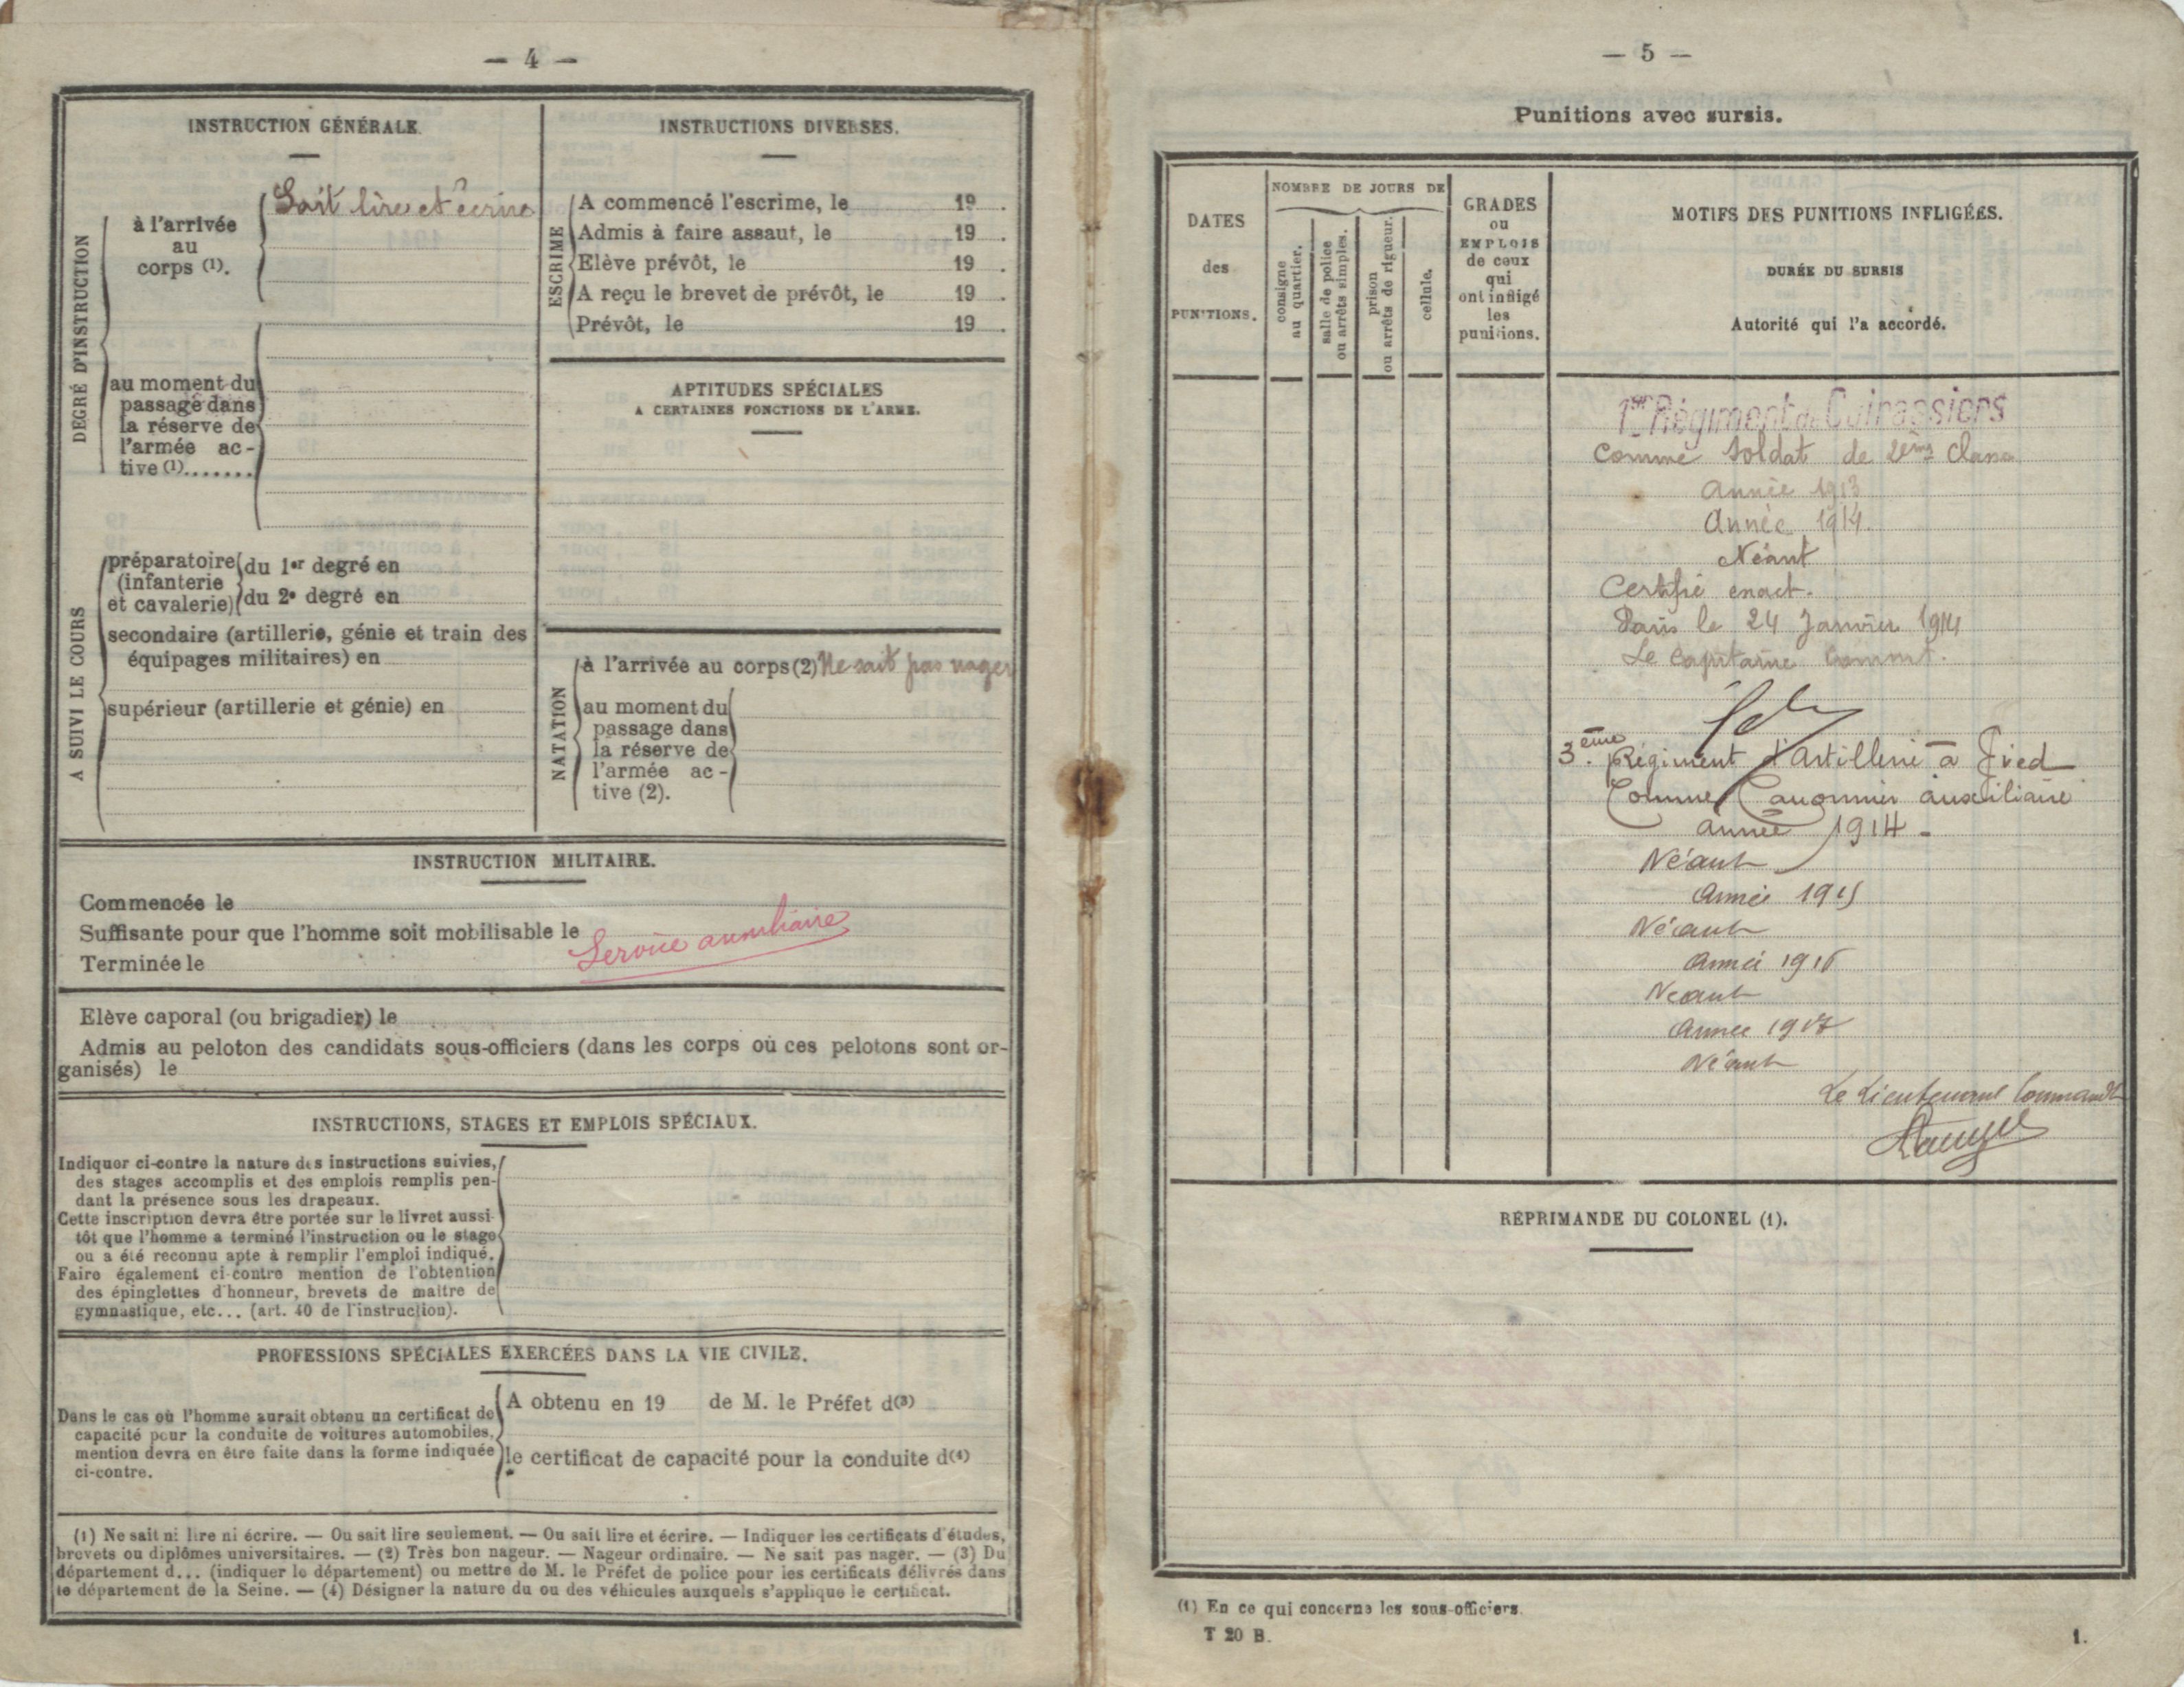 — 4 —
INSTRUCTION GÉNÉRALE.
DEGRÉ D'INSTRUCTION
à l'arrivée
au
corps (1).
Sait lire et écrire
au moment du
passage dans
la réserve de
l'armée ac-
tive (1).......
A SUIVI LE COURS
préparatoire
(infanterie
et cavalerie)
du 1er degré en
du 2e degré en
secondaire (artillerie, génie et train des
équipages militaires) en
supérieur (artillerie et génie) en
INSTRUCTIONS DIVERSES.
ESCRIME
A commencé l'escrime, le 19 .
Admis à faire assaut, le 19 .
Elève prévôt, le 19 .
A reçu le brevet de prévôt, le 19 .
Prévôt, le 19 .
APTITUDES SPÉCIALES
A CERTAINES FONCTIONS DE L'ARME.
NATATION
à l'arrivée au corps (2) Ne sait pas nager
au moment du
passage dans
la réserve de
l'armée ac-
tive (2).
INSTRUCTION MILITAIRE.
Commencée le
Suffisante pour que l'homme soit mobilisable le
Terminée le
Service auxiliaire
Elève caporal (ou brigadier) le
Admis au peloton des candidats sous-officiers (dans les corps où ces pelotons sont or-
ganisés) le
INSTRUCTIONS, STAGES ET EMPLOIS SPÉCIAUX.
Indiquer ci-contre la nature des instructions suivies,
des stages accomplis et des emplois remplis pen-
dant la présence sous les drapeaux.
Cette inscription devra être portée sur le livret aussi-
tôt que l'homme a terminé l'instruction ou le stage
ou a été reconnu apte à remplir l'emploi indiqué.
Faire également ci-contre mention de l'obtention
des épinglettes d'honneur, brevets de maître de
gymnastique, etc... (art. 40 de l'instruction).
PROFESSIONS SPÉCIALES EXERCÉES DANS LA VIE CIVILE.
Dans le cas où l'homme aurait obtenu un certificat de
capacité pour la conduite de voitures automobiles,
mention devra en être faite dans la forme indiquée
ci-contre.
A obtenu en 19 de M. le Préfet d(3)
le certificat de capacité pour la conduite d(4)
(1) Ne sait ni lire ni écrire. — Ou sait lire seulement. — Ou sait lire et écrire. — Indiquer les certificats d'études,
brevets ou diplômes universitaires. — (2) Très bon nageur. — Nageur ordinaire. — Ne sait pas nager. — (3) Du
département d... (indiquer le département) ou mettre de M. le Préfet de police pour les certificats délivrés dans
le département de la Seine. — (4) Désigner la nature du ou des véhicules auxquels s'applique le certificat.
— 5 —
Punitions avec sursis.
DATES
des
PUNITIONS.
NOMBRE DE JOURS DE
consigne
au quartier.
salle de police
ou arrêts simples.
prison
ou arrêts de rigueur.
cellule.
GRADES
ou
EMPLOIS
de ceux
qui
ont infligé
les
punitions.
MOTIFS DES PUNITIONS INFLIGÉES.
DURÉE DU SURSIS
Autorité qui l'a accordé.
1er Régiment de Cuirassiers
Comme soldat de 2ème classe
Année 1913
Année 1914.
Néant
Certifié exact.
Paris le 24 Janvier 1914
Le Capitaine Commt.
3ème Régiment d'Artillerie à Pied
Comme Canonnier auxiliaire
année 1914 -
Néant
Année 1915
Néant
Année 1916
Neant
Annee 1917
Néant
Le Lieutenant Commandt
RÉPRIMANDE DU COLONEL (1).
(1) En ce qui concerne les sous-officiers.
T 20 B.
1.